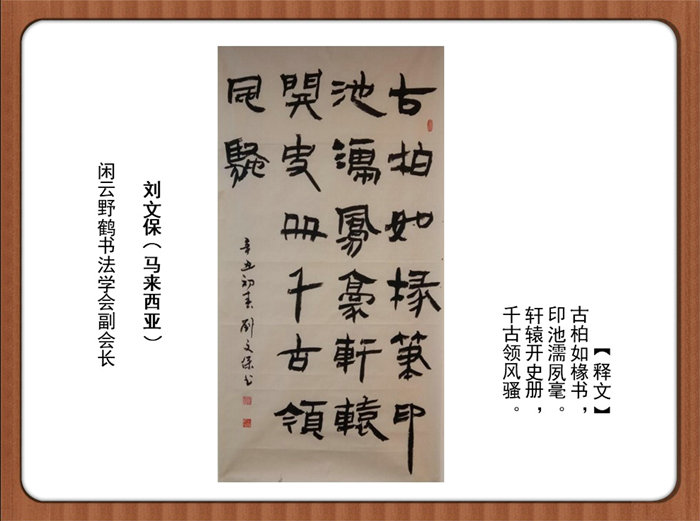 【释文】
古柏如椽书，
印池濡夙毫。
轩辕开史册，
千古领风骚。
古柏如椽筆印
池濡鳳毫軒轅
開史册千古領
風騷
辛丑初春劉文保书
刘文保（马来西亚）
闲云野鹤书法学会副会长